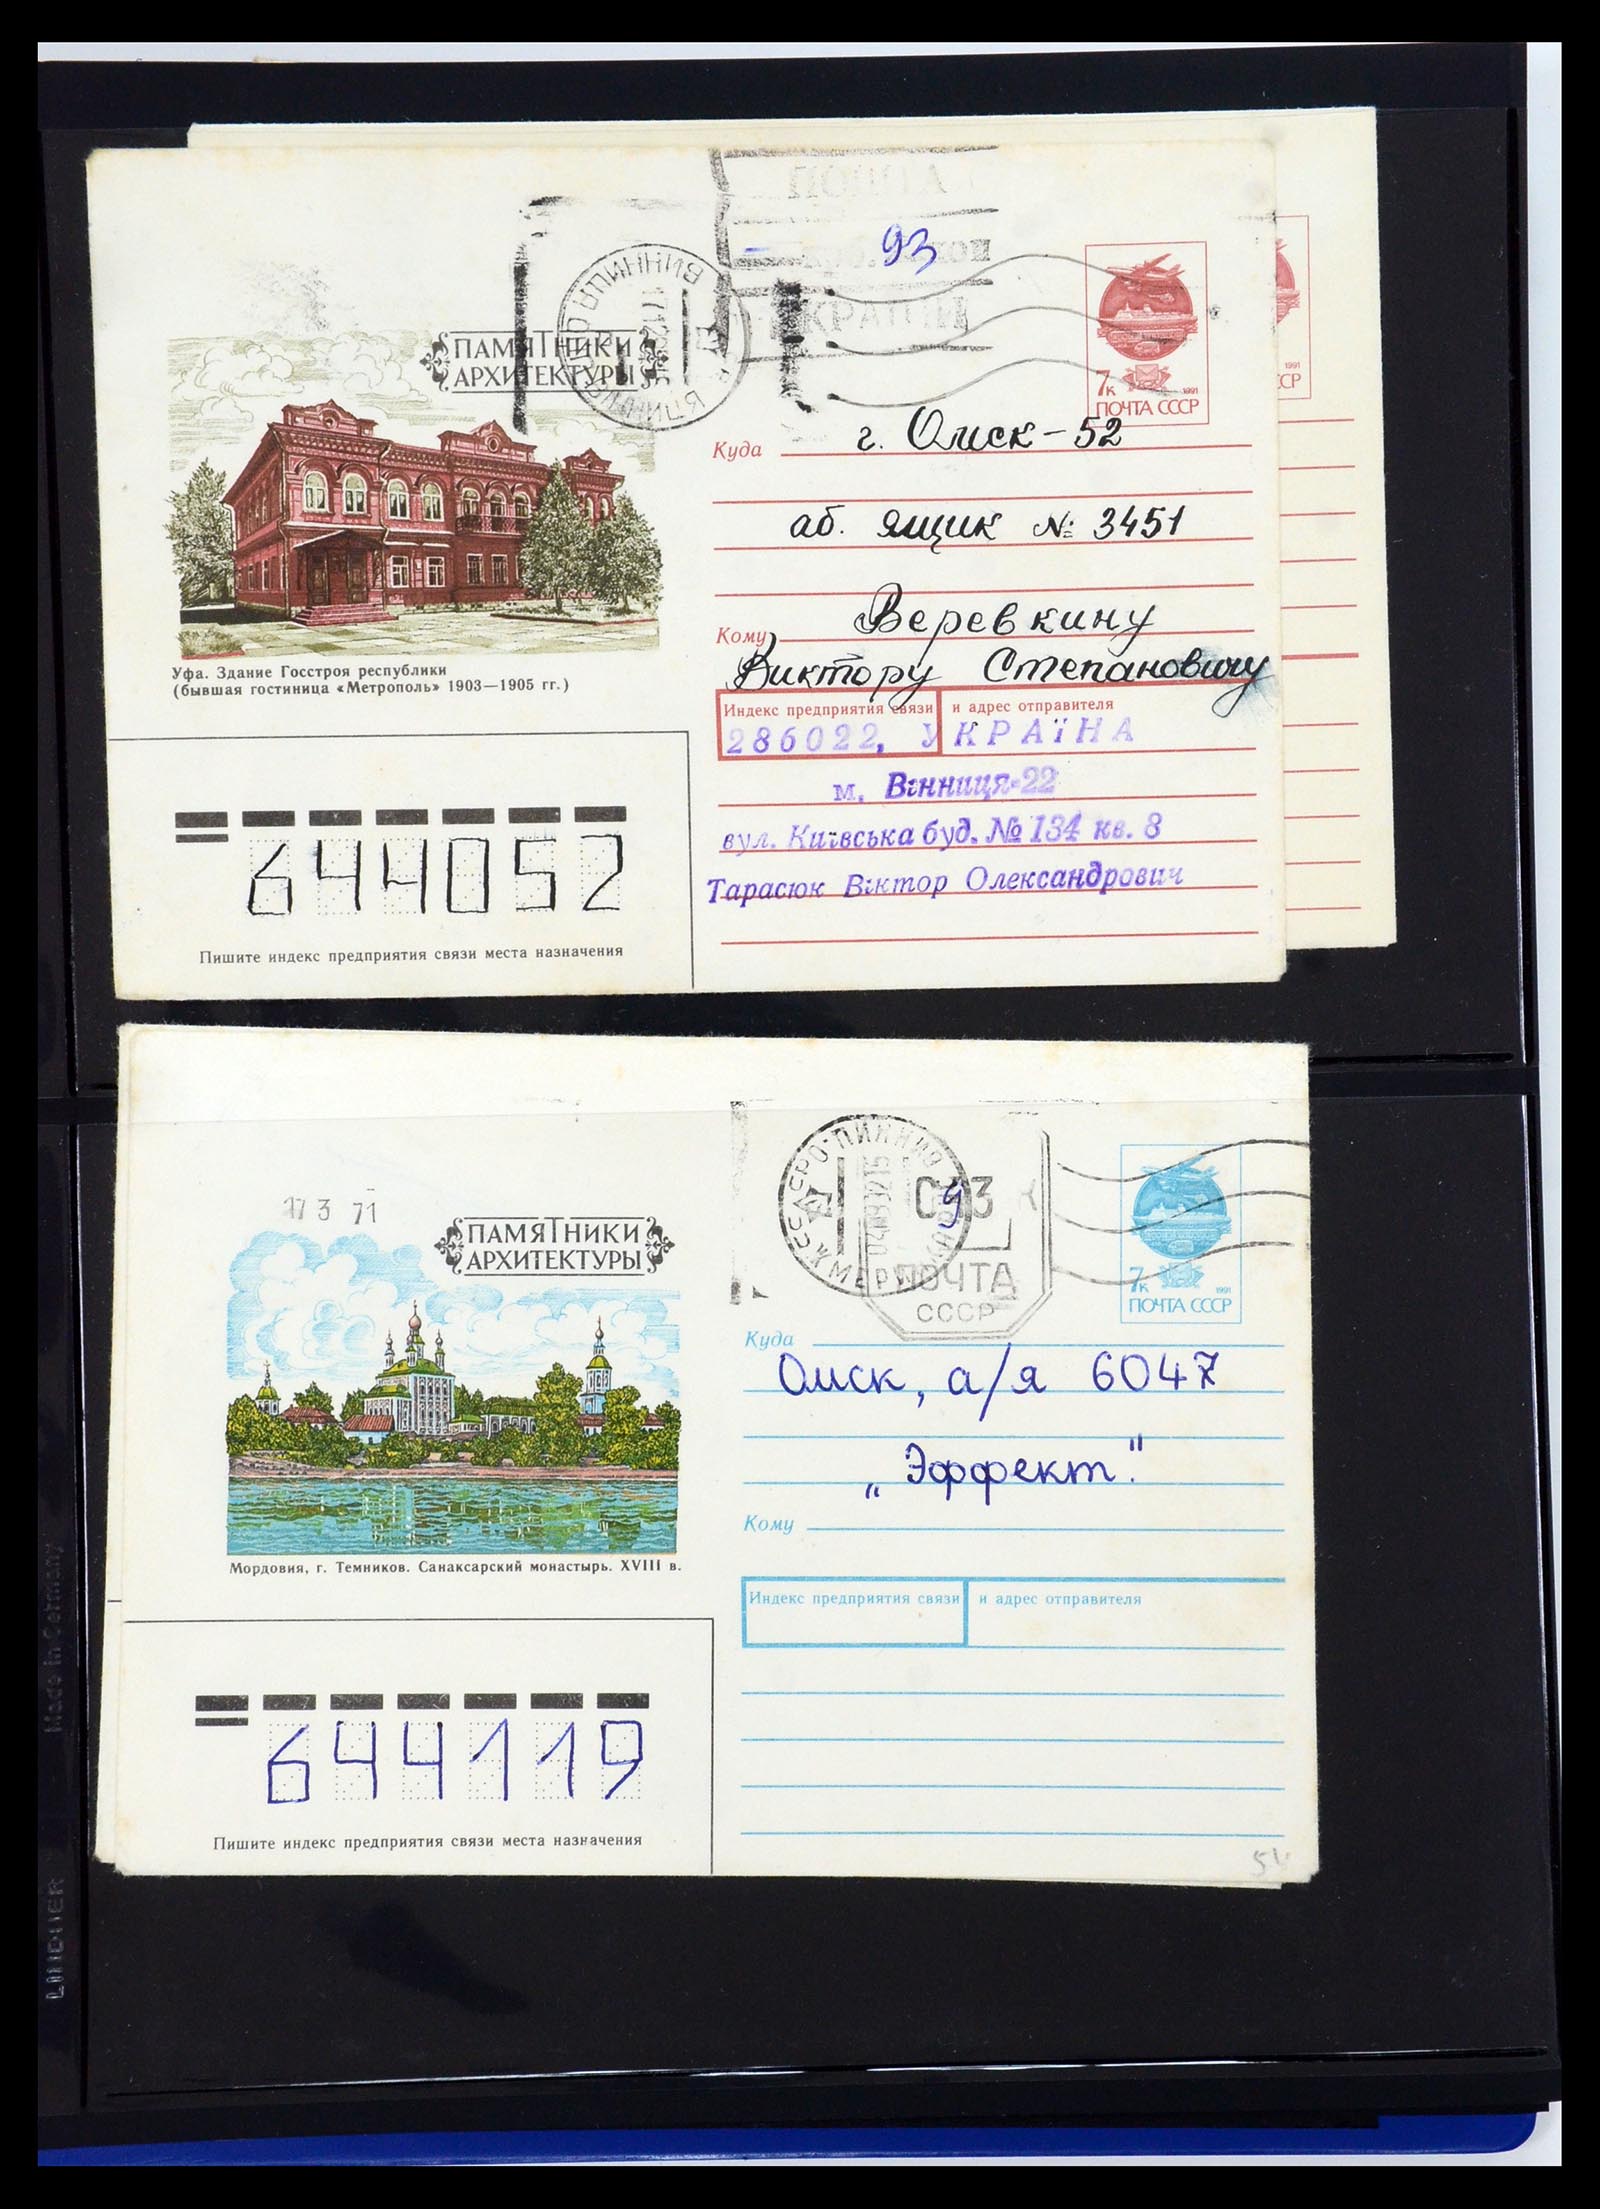 ПОШТА
93
УКРАЇНИ
ВІННИЦЯ
ПАМЯТНИКИ
АРХИТЕКТУРЫ
7к 1991
ПОЧТА СССР
1991
СР
Куда г. Омск-52
аб. ящик № 3451
Кому Веревкину
Виктору Степановичу
Уфа. Здание Госстроя республики
(бывшая гостиница «Метрополь» 1903—1905 гг.)
Индекс предприятия связи и адрес отправителя
286022, УКРАЇНА
м. Вінниця-22
вул. Київська буд. № 134 кв. 8
Тарасюк Віктор Олександрович
644052
Пишите индекс предприятия связи места назначения
17 3 71
ПАМЯТНИКИ
АРХИТЕКТУРЫ
ПОЧТА
СССР
7к 1991
ПОЧТА СССР
Куда
Омск, а/я 6047
„Эффект"
Кому
Мордовия, г. Темников. Санаксарский монастырь. XVIII в.
Индекс предприятия связи и адрес отправителя
644119
Пишите индекс предприятия связи места назначения
Made in Germany
LINDNER